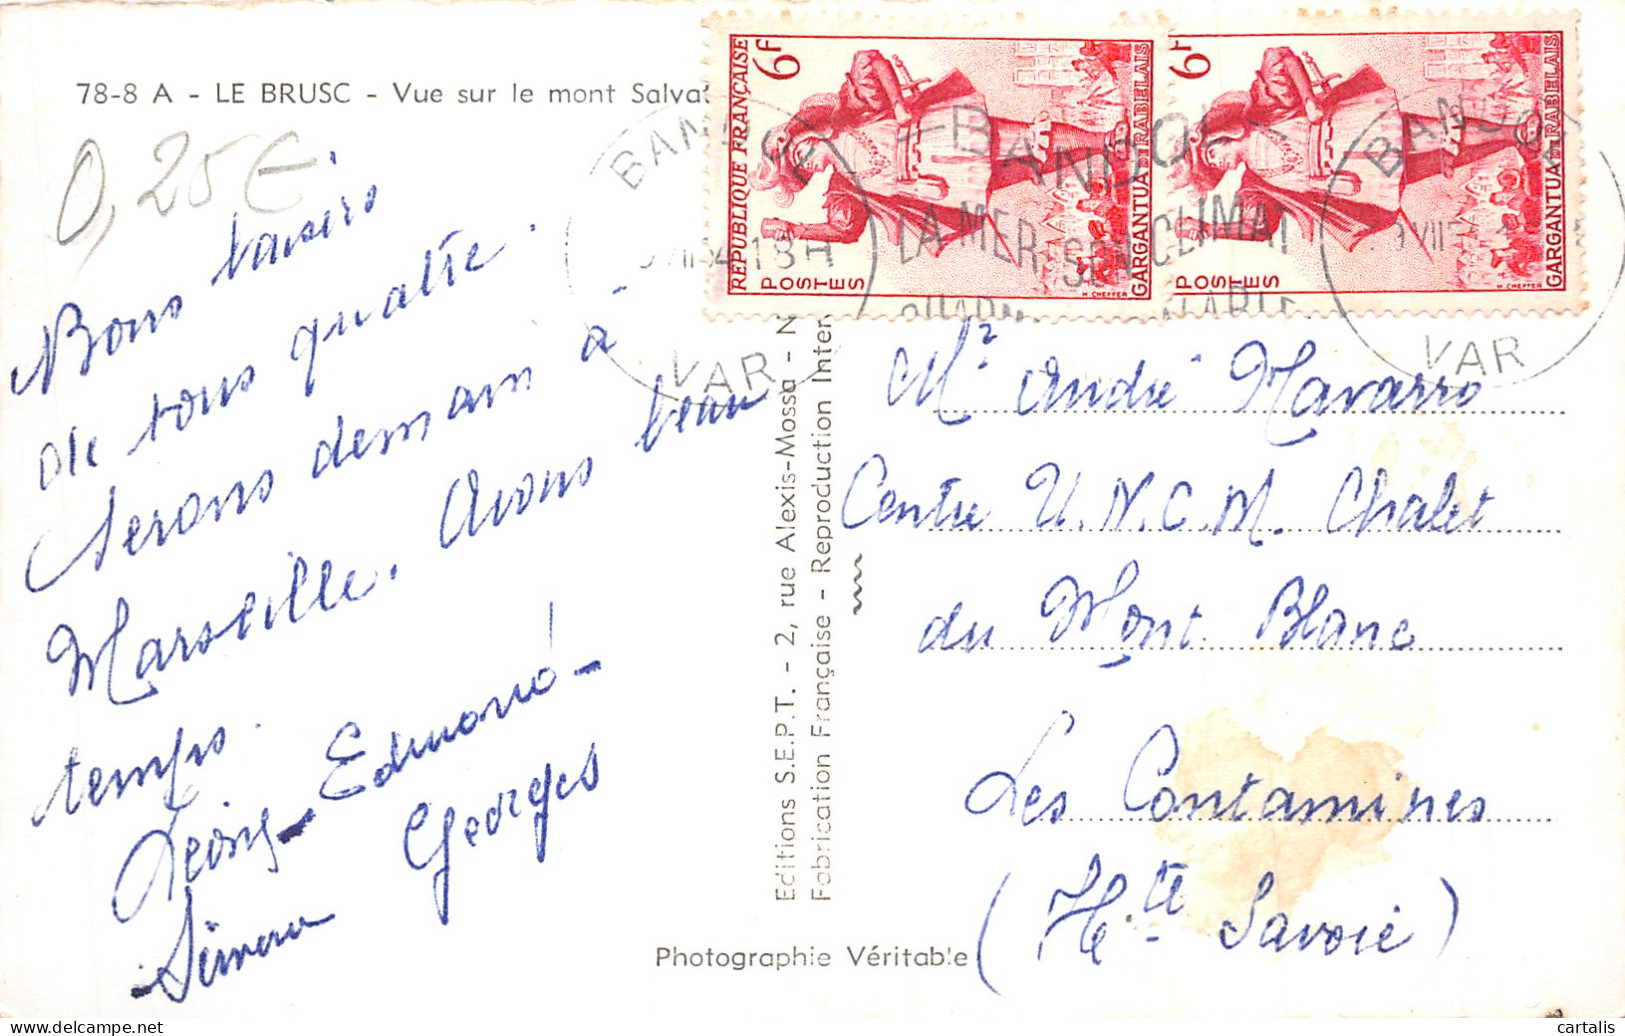 78-8 A - LE BRUSC - Vue sur le mont Salva
0,25€
Bons baisers
de tous quatre.
Serons demain à
Marseille. Avons beau
temps.
Edmond -
Georges
Simone
Editions S.E.P.T. - 2, rue Alexis-Mossa - N
Fabrication Française - Reproduction Inter
Photographie Véritable
RÉPUBLIQUE FRANÇAISE
6F
POSTES
GARGANTUA DE RABELAIS
H. CHEFFER
6F
POSTES
GARGANTUA DE RABELAIS
H. CHEFFER
BANDOL
18H
VAR
BANDOL
LA MER SON CLIMAT
BANDOL
VAR
Mr André Navarro
Centre U.N.C.M. Chalet
du Mont Blanc
Les Contamines
(Hte Savoie)
cartalis
https://www.delcampe.net